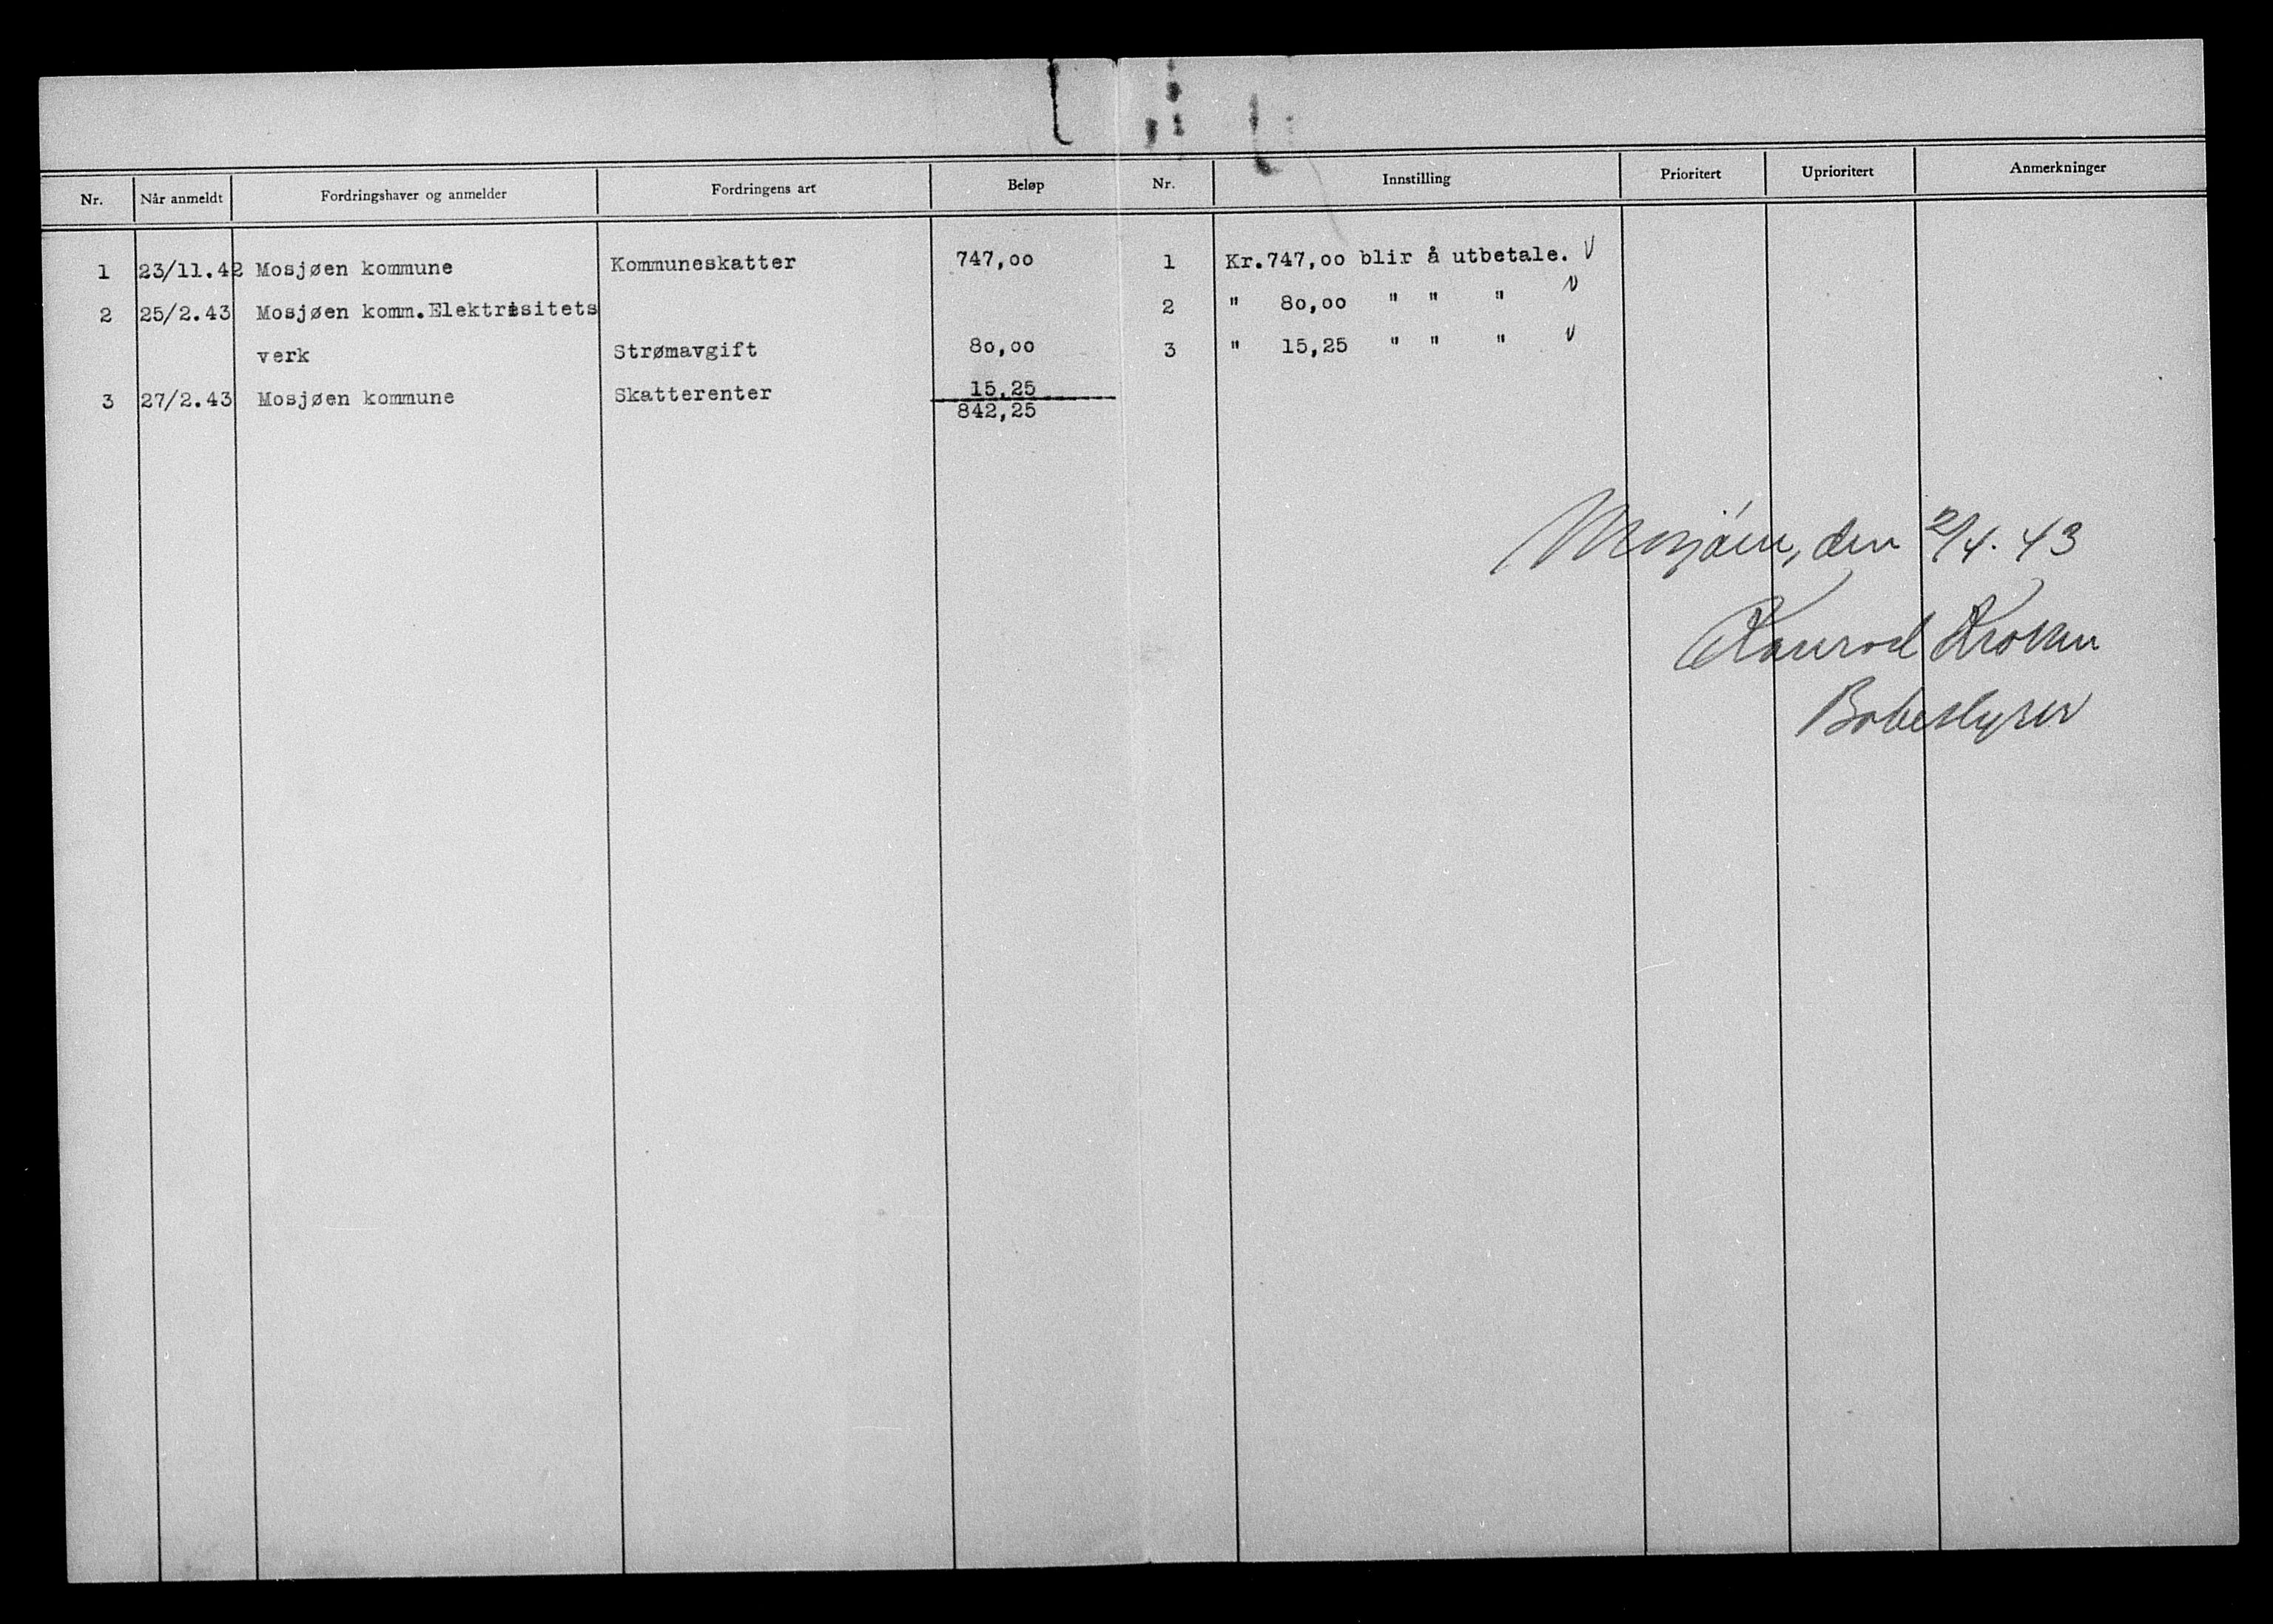 Nr. Når anmeldt Fordringshaver og anmelder Fordringens art Beløp Nr. Innstilling Prioritert Uprioritert Anmerkninger
1 23/11.42 Mosjøen kommune Kommuneskatter 747,00 1 Kr.747,00 blir å utbetale. V
2 25/2.43 Mosjøen komm.Elektrisitets 2 " 80,00 " " " V
verk Strømavgift 80,00 3 " 15,25 " " " V
3 27/2.43 Mosjøen kommune Skatterenter 15,25
842,25
Mosjøen, den 2/4. 43
Konrad
Bobestyrer